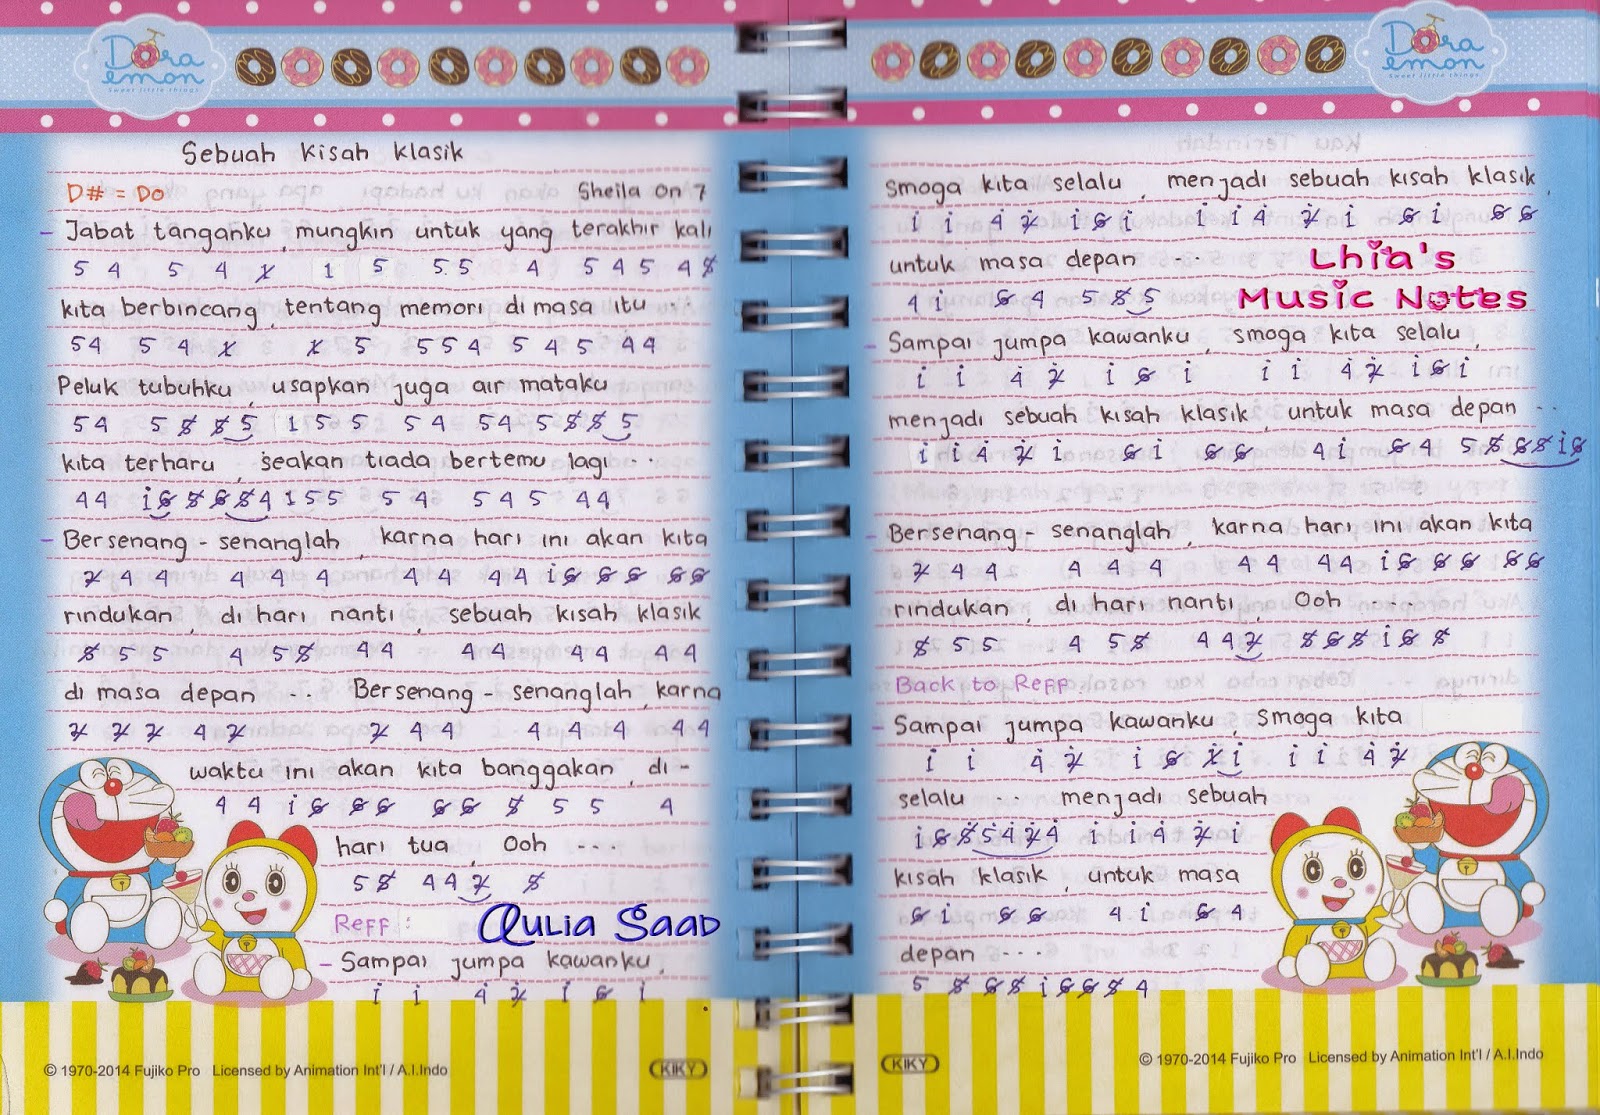 Dora
emon
Sweet little things
Sebuah Kisah Klasik
D# = Do Sheila On 7
- Jabat tanganku, mungkin untuk yang terakhir kali
5 4 5 4 1̸ 1 5 5 5 4 5 4 5 4 5̸
kita berbincang, tentang memori di masa itu ...
5 4 5 4 1̸ 1̸ 5 5 5 4 5 4 5 4 4
Peluk tubuhku, usapkan juga air mataku
5 4 5 5̸ 5̸ 5 1 5 5 5 4 5 4 5 5̸ 5̸ 5
kita terharu, seakan tiada bertemu lagi ...
4 4 i 6̸ 5̸ 6̸ 5̸ 4 1 5 5 5 4 5 4 5 4 4
- Bersenang - senanglah, karna hari ini akan kita
2̸ 4 4 4 4 4 4 4 4 4 i 6̸ 6̸ 6̸ 6̸ 6̸
rindukan, di hari nanti, sebuah kisah klasik
5̸ 5 5 4 5 5̸ 4 4 4 4 4 4 4 4
di masa depan ... Bersenang - senanglah, karna
2̸ 2̸ 2̸ 4 2̸ 2̸ 4 4 4 4 4 4 4
waktu ini akan kita banggakan, di -
4 4 i 6̸ 6̸ 6̸ 6̸ 6̸ 5̸ 5 5 4
hari tua, Ooh ...
5 5̸ 4 4 2̸ 5̸
Reff :
Aulia Saad
- Sampai jumpa kawanku,
i i 4̇ 2̸̇ i 6̸ i
© 1970-2014 Fujiko Pro Licensed by Animation Int'l / A.I.Indo
KIKY
Dora
emon
Sweet little things
Kau Terindah
Smoga kita selalu, menjadi sebuah kisah klasik
i i 4̇ 2̸̇ i 6̸ i i i 4̇ 2̸̇ i 6̸ i 6̸ 6̸
untuk masa depan ...
4 i 6̸ 4 5 5̸ 5
Lhia's
Music Notes
- Sampai jumpa kawanku, smoga kita selalu,
i i 4̇ 2̸̇ i 6̸ i i i 4̇ 2̸̇ i 6̸ i
menjadi sebuah kisah klasik, untuk masa depan ..
i i 4̇ 2̸̇ i 6̸ i 6̸ 6̸ 4 i 6̸ 4 5 5̸ 6̸ 5̸ i 6̸
- Bersenang - senanglah, karna hari ini akan kita
2̸ 4 4 4 4 4 4 4 4 4 i 6̸ 6̸ 6̸ 6̸ 6̸
rindukan, di hari nanti, Ooh ...
5̸ 5 5 4 5 5̸ 4 4 2̸ 5̸ 6̸ 5̸ i 6̸ 5̸
Back to Reff
- Sampai jumpa kawanku, Smoga kita
i i 4̇ 2̸̇ i 6̸ 1̸̇ i i i 4̇ 2̸̇
selalu ... menjadi sebuah
i 6̸ 5̸ 5̇ 4̇ 2̸̇ 4̇ i i 4̇ 2̸̇ i
kisah klasik, untuk masa
6̸ i 6̸ 6̸ 4 i 6̸ 4
depan ...
5 5̸ 6̸ 5̸ i 6̸ 6̸ 5̸ 4
KIKY
© 1970-2014 Fujiko Pro Licensed by Animation Int'l / A.I.Indo